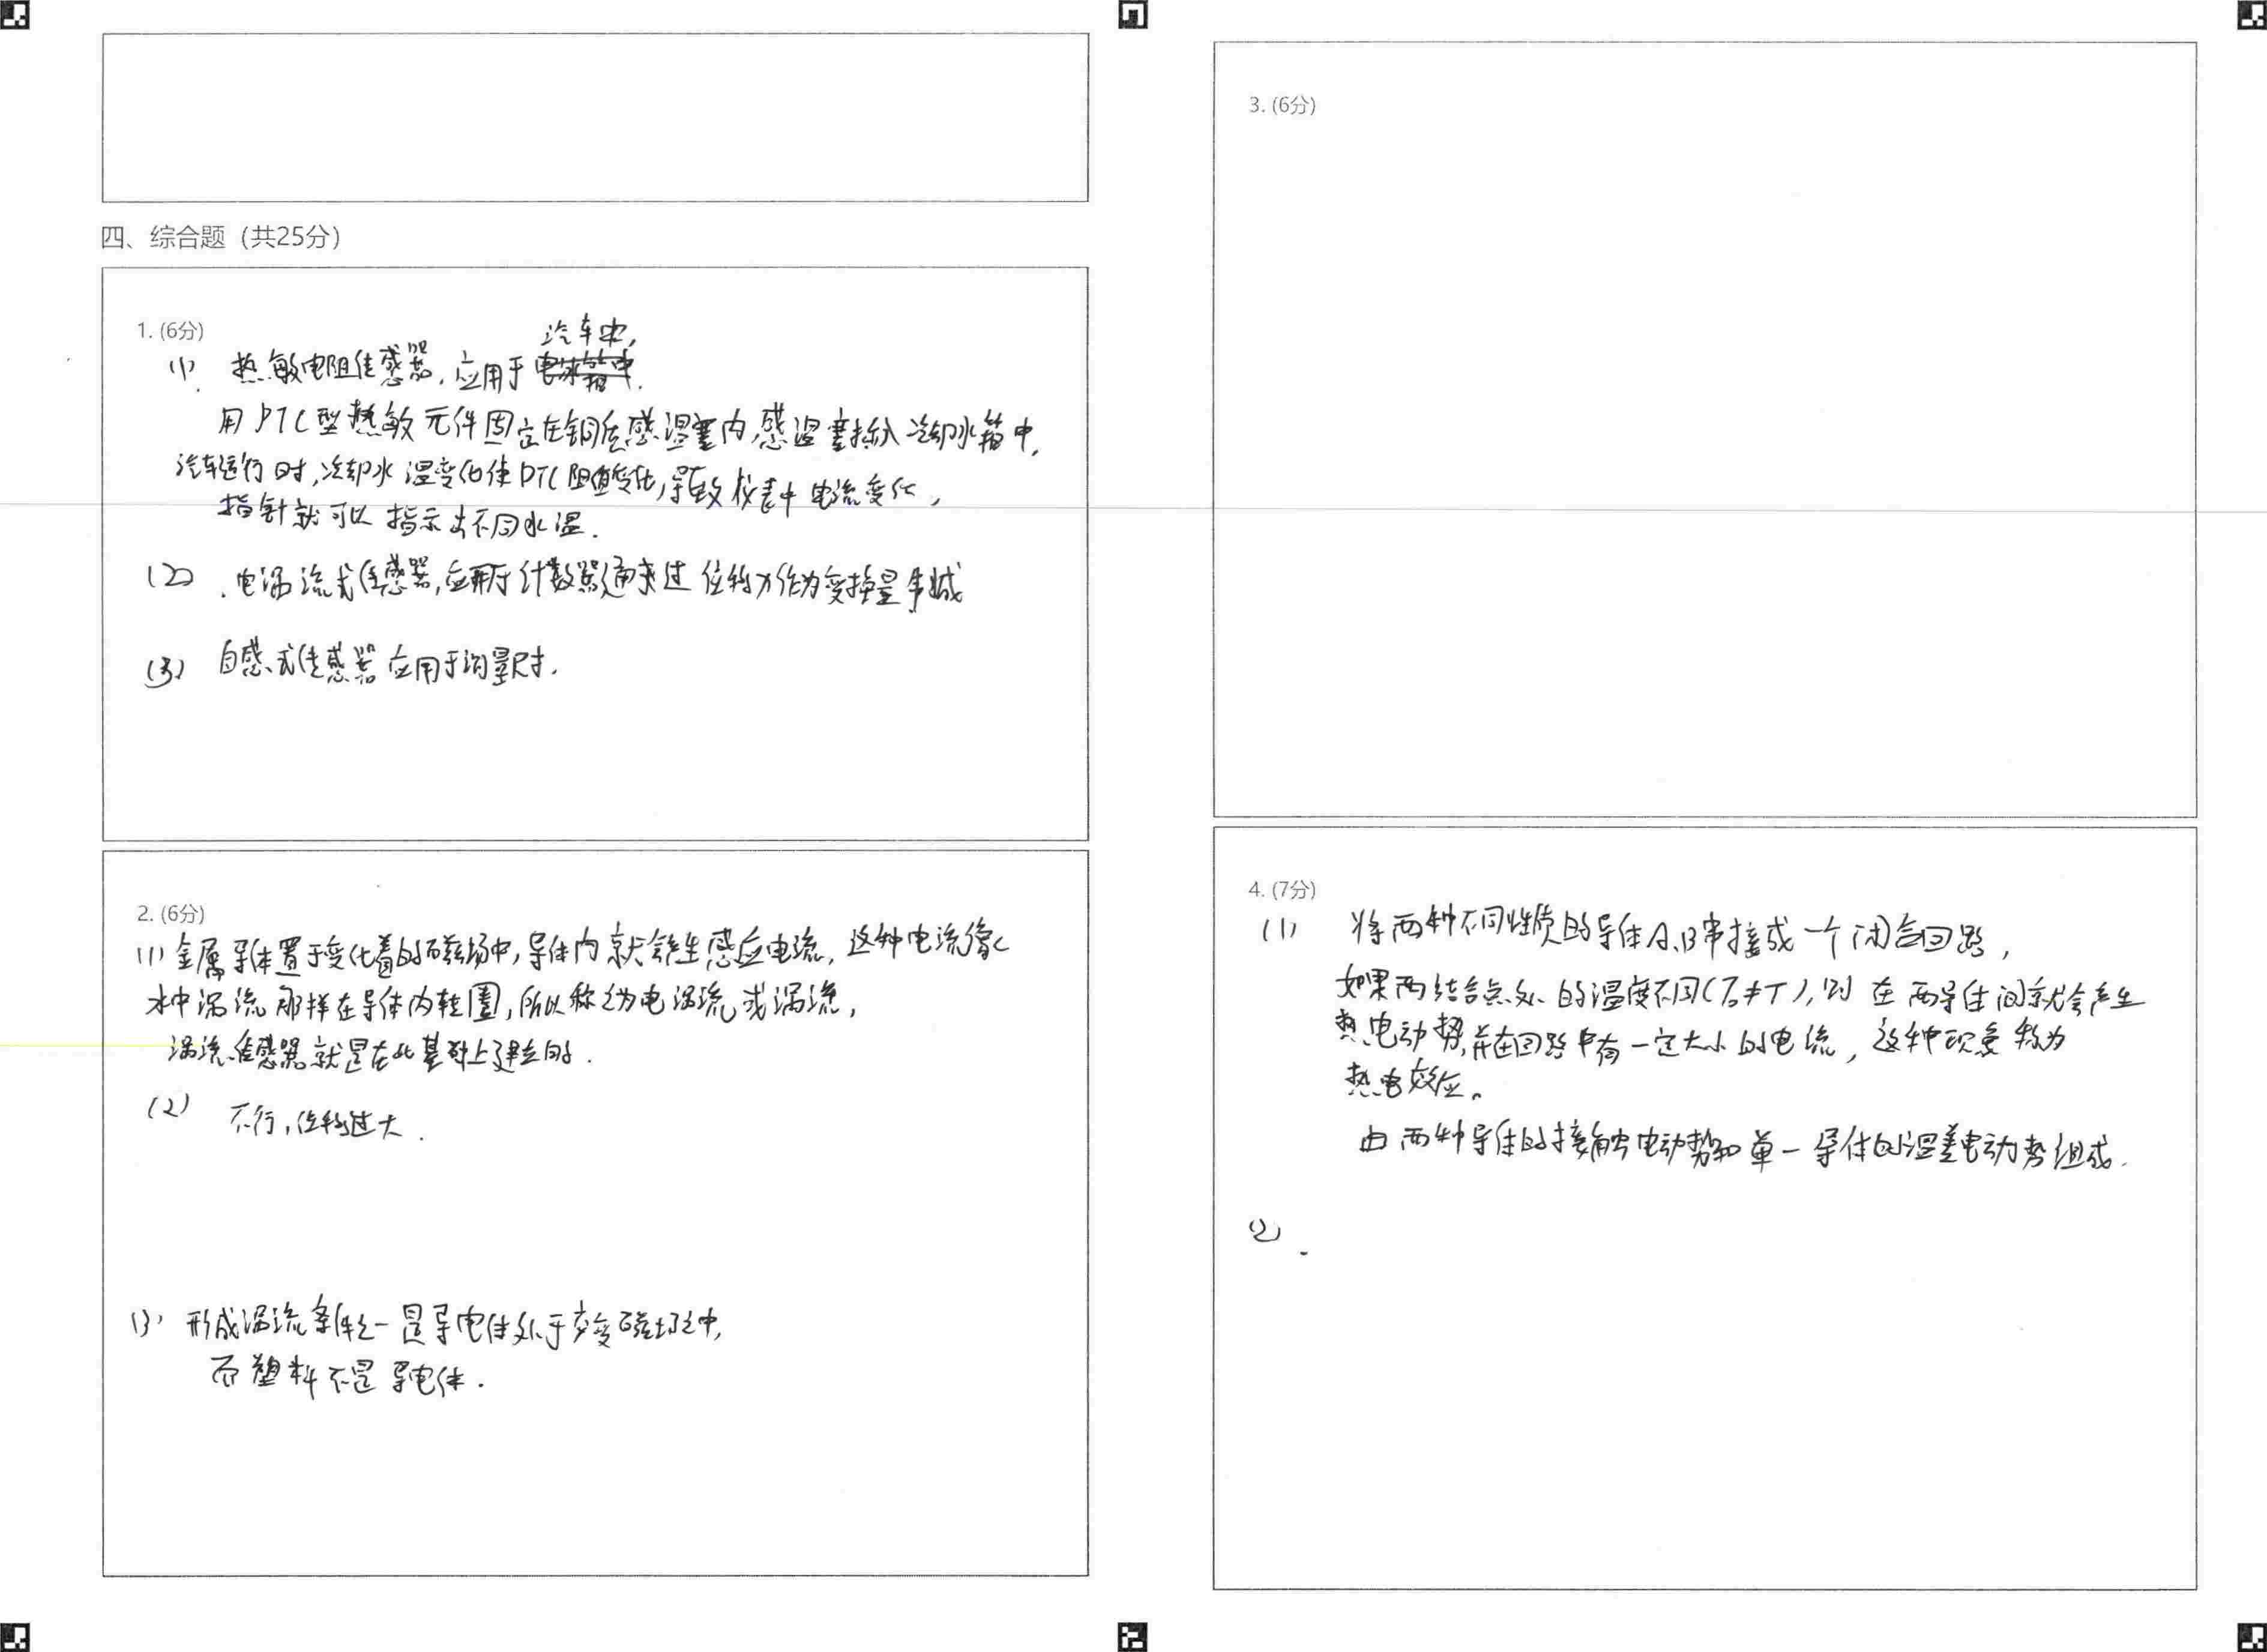 四、综合题（共25分）
1. (6分)
汽车中,
(1) 热敏电阻传感器, 应用于
用PTC型热敏元件固定在铜质感温塞内,感温塞插入冷却水箱中.
汽车运行时,冷却水温变化使PTC阻值变化,导致仪表中电流变化,
指针就可以指示出不同水温.
(2) .电涡流式传感器,应用于计数器通过位移x作为变换量
(3) 自感式传感器应用于测量尺寸.
2. (6分)
(1) 金属导体置于变化着的磁场中,导体内就会产生感应电流,这种电流像
水中涡流那样在导体内转圈,所以称之为电涡流或涡流,
涡流传感器就是在此基础上建立的.
(2) 不行,位移过大.
(3) 形成涡流条件之一是导电体处于交变磁场之中,
而塑料不是导电体.
3. (6分)
4. (7分)
(1) 将两种不同性质的导体A、B串接成一个闭合回路,
如果两结合点处的温度不同(T₀≠T),则在两导体间就会产生
热电动势,并在回路中有一定大小的电流,这种现象称为
热电效应。
由两种导体的接触电动势和单一导体的温差电动势组成.
(2) .